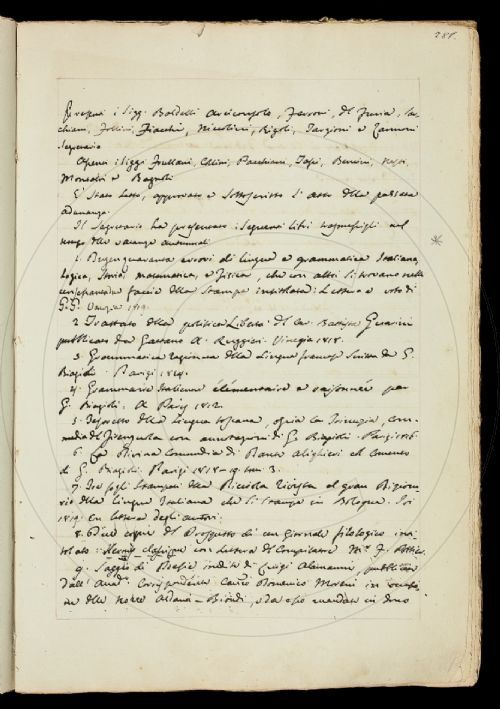 281.
Presenti i Sigg. Baldelli Arciconsolo, Ferroni, Del Furia,
chiani, Follini, Fiacchi, Niccolini, Rigoli, Targioni e Zannoni
Segretario
Assenti i Siggi Frullani, Collini, Bencini,
e Bagnoli
È stato letto, approvato e sottoscritto l'atto della passata
adunanza.
Il Segretario ha presentato i seguenti libri nel
tempo delle vacanze autunnali
1. errori di lingua e grammatica Italiana,
Logica, Storia, matematica, e fisica, che con altri si trovano nelle
facce della stampa intitolata: Lettera e voto di
G. G. Venezia 1819.
2. Trattato della politica Libertà del Cav. Battista Guarini
pubblicato da Gaetano A. Ruggieri. Venezia 1818.
3. Grammatica ragionata della Lingua francese scritta da G.
Biagioli. Parigi 1814.
4. Grammaire Italienne élémentaire et raisonnée par
G. Biagioli. A Paris 1812.
5. della lingua toscana, ossia la Trinuzia, com-
media del Firenzuola con annotazioni di G. Biagioli. Parigi 1816.
6. La Divina Commedia di Dante Alighieri col comento
di G. Biagioli. Parigi 1818-19. tom. 3.
7. Tre fogli stampati della Piccola Rivista al gran Dizionario
della lingua Italiana che si stampa in Bologna.
1819. Con lettera degli autori.
8. copie del Prospetto di un Giornale filologico inti-
tolato: Hermes classique con Lettera del Compilatore
9. Saggio di Poesie inedite di Luigi Alamanni, pubblicate
dall' Accad. Corrispondente Canco Domenico Moreni in occasio-
ne delle Nozze Aldana-Bisdi, e da esso mandato in dono